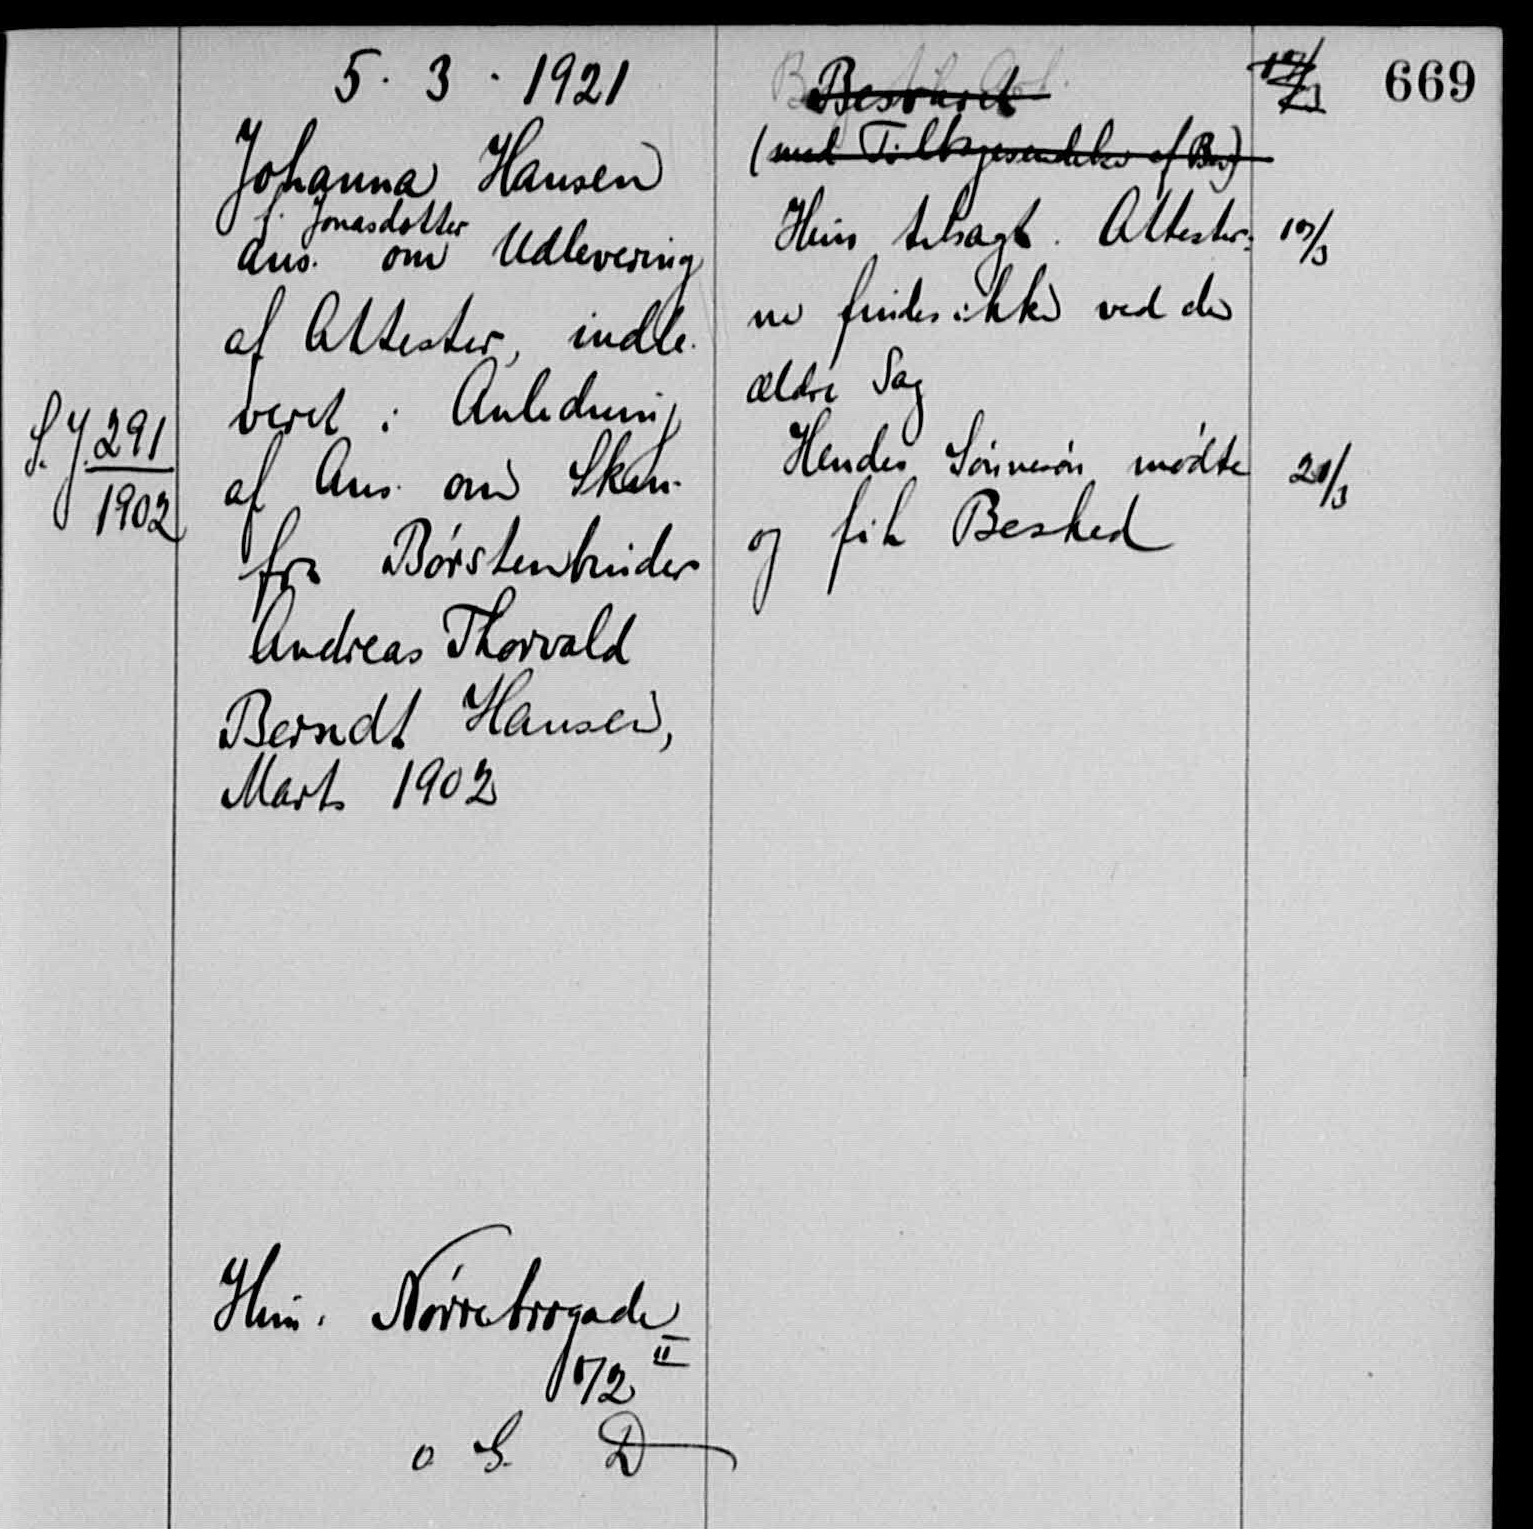 669
5. 3. 1921
Johanna Hansen
f. Jonasdotter
Ans. om Udlevering
af Attester, indle-
veret i Anledning
af Ans. om Skm.
fra Børstenbinder
Andreas Thorvald
Berndt Hansen,
Marts 1902
S. J. 291
1902
Hun. Nørrebrogade
172 II
o. G. D
Besvaret
(med Tilbagesendelse af Bes)
Hun tilsagt. Attester- 17/3
ne findes ikke ved den
ældre Sag
Hendes Sønnesøn mødte 21/3
og fik Besked